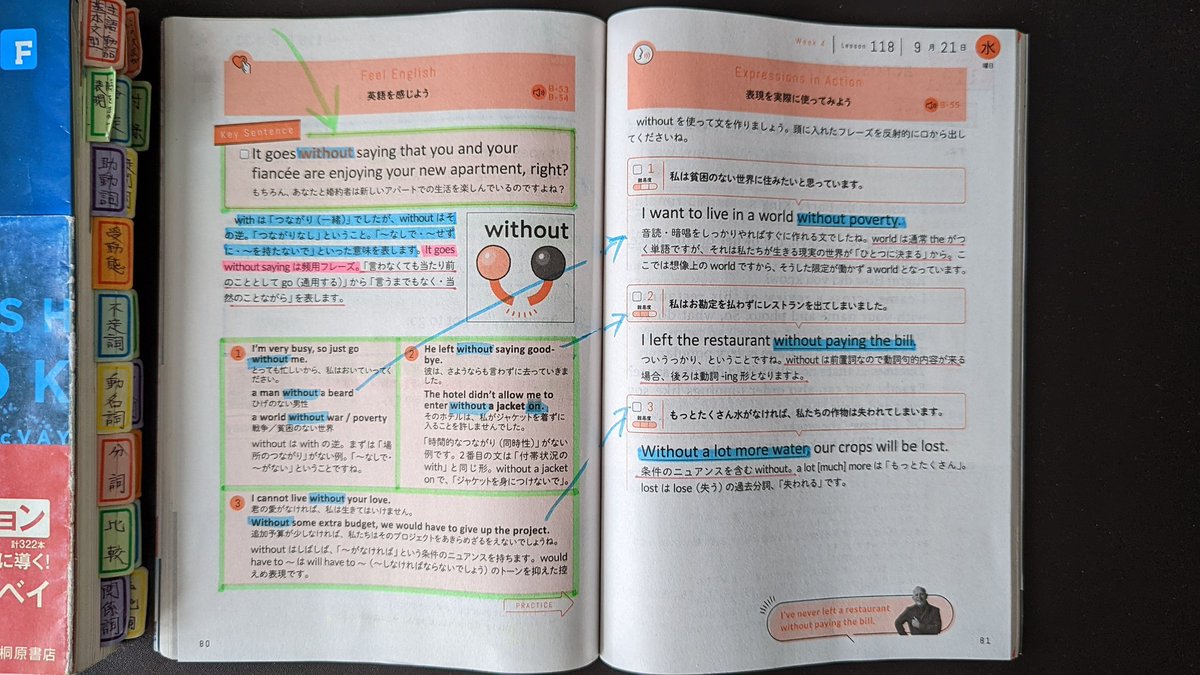 F
SH
OK
cVAY
ョン
計322本
に導く!
ベイ
桐原書店
基本文型
表現
助動詞
受動態
不定詞
動名詞
分詞
比較
関係詞
Feel English
英語を感じよう
B-53
B-54
Key Sentence
It goes without saying that you and your
fiancée are enjoying your new apartment, right?
もちろん、あなたと婚約者は新しいアパートでの生活を楽しんでいるのですよね?
withは「つながり(一緒)」でしたが、withoutはそ
の逆。「つながりなし」ということ。「〜なしで・〜せず
に・〜を持たないで」といった意味を表します。It goes
without sayingは頻用フレーズ。「言わなくても当たり前
のこととしてgo(通用する)」から「言うまでもなく・当
然のことながら」を表します。
without
1
I'm very busy, so just go
without me.
とっても忙しいから、私はおいていってく
ださい。
a man without a beard
ひげのない男性
a world without war / poverty
戦争/貧困のない世界
withoutはwithの逆。まずは「場
所のつながり」がない例。「〜なしで・
〜がない」ということですね。
2
He left without saying good-
bye.
彼は、さようならも言わずに去っていきま
した。
The hotel didn't allow me to
enter without a jacket on.
そのホテルは、私がジャケットを着ずに
入ることを許しませんでした。
「時間的なつながり(同時性)」がない
例です。2番目の文は「付帯状況の
with」と同じ形。without a jacket
onで、「ジャケットを身につけないで」。
3
I cannot live without your love.
君の愛がなければ、私は生きてはいけません。
Without some extra budget, we would have to give up the project.
追加予算が少しなければ、私たちはそのプロジェクトをあきらめざるをえないでしょうね。
withoutはしばしば、「〜がなければ」という条件のニュアンスを持ちます。would
have to 〜はwill have to 〜(〜しなければならないでしょう)のトーンを抑えた控
えめ表現です。
PRACTICE
80
Week 4
Lesson 118
9月21日
水
曜日
Expressions in Action
表現を実際に使ってみよう
B-55
withoutを使って文を作りましょう。頭に入れたフレーズを反射的に口から出し
てくださいね。
1
難易度
私は貧困のない世界に住みたいと思っています。
I want to live in a world without poverty.
音読・暗唱をしっかりやればすぐに作れる文でしたね。worldは通常theがつ
く単語ですが、それは私たちが生きる現実の世界が「ひとつに決まる」から。こ
こでは想像上のworldですから、そうした限定が働かずa worldとなっています。
2
難易度
私はお勘定を払わずにレストランを出てしまいました。
I left the restaurant without paying the bill.
ついうっかり、ということですね。withoutは前置詞なので動詞句的内容が来る
場合、後ろは動詞-ing形となりますよ。
3
難易度
もっとたくさん水がなければ、私たちの作物は失われてしまいます。
Without a lot more water, our crops will be lost.
条件のニュアンスを含むwithout。a lot [much] moreは「もっとたくさん」。
lostはlose(失う)の過去分詞、「失われる」です。
I've never left a restaurant
without paying the bill.
81